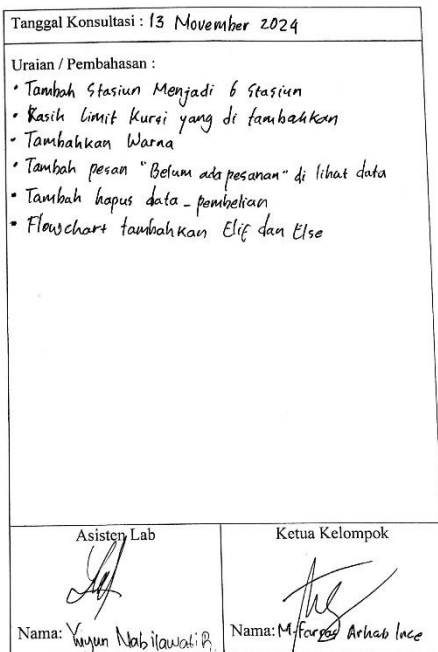 Tanggal Konsultasi : 13 November 2024
Uraian / Pembahasan :
• Tambah Stasiun Menjadi 6 Stasiun
• Kasih limit Kursi yang di tambahkan
• Tambahkan Warna
• Tambah pesan "Belum ada pesanan" di lihat data
• Tambah hapus data_pembelian
• Flowchart tambahkan Elif dan Else
Asisten Lab
Ketua Kelompok
Nama: Yuyun Nabilawati R.
Nama: M. Arhab Ince